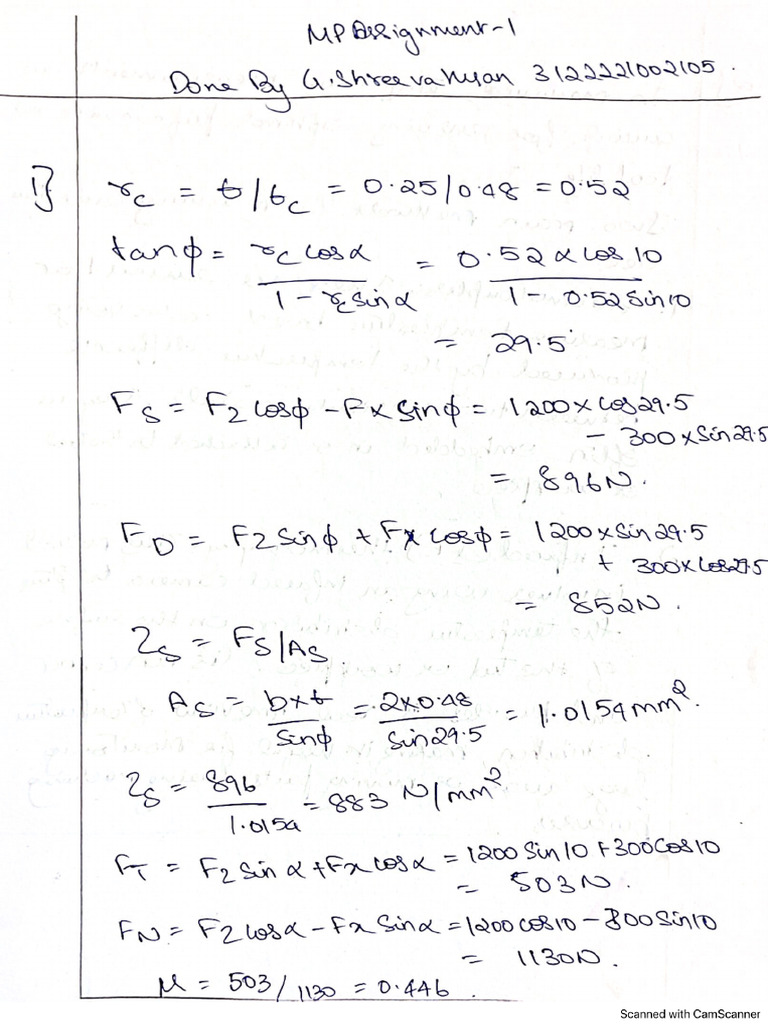 MP Assignment-1
Done By G.Shreevathsan 3122221002105.
1} rc = t/tc = 0.25/0.48 = 0.52
tanϕ = rc cosα / 1 - rc sinα = 0.52 x cos 10 / 1 - 0.52 sin 10
= 29.5°
FS = FZ cosϕ - Fx sinϕ = 1200 x cos 29.5
- 300 x Sin 29.5
= 896N.
FD = FZ Sinϕ + Fx cosϕ = 1200 x sin 29.5
+ 300 x cos 29.5
= 852N.
ζs = FS/AS
AS = b x t / sinϕ = 2 x 0.48 / sin 29.5 = 1.0154 mm²
ζs = 896 / 1.0154 = 883 N/mm²
FT = FZ Sin α + Fx cos α = 1200 Sin 10 + 300 Cos 10
= 503N.
FN = FZ cosα - Fx Sinα = 1200 cos 10 - 300 Sin 10
= 1130N.
μ = 503 / 1130 = 0.446.
Scanned with CamScanner